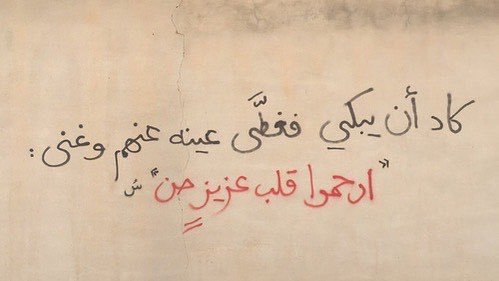 كاد أن يبكي فغطَّى عينه عنهم وغنى :
"ارحموا قلب عزيزٍ حن" سُ